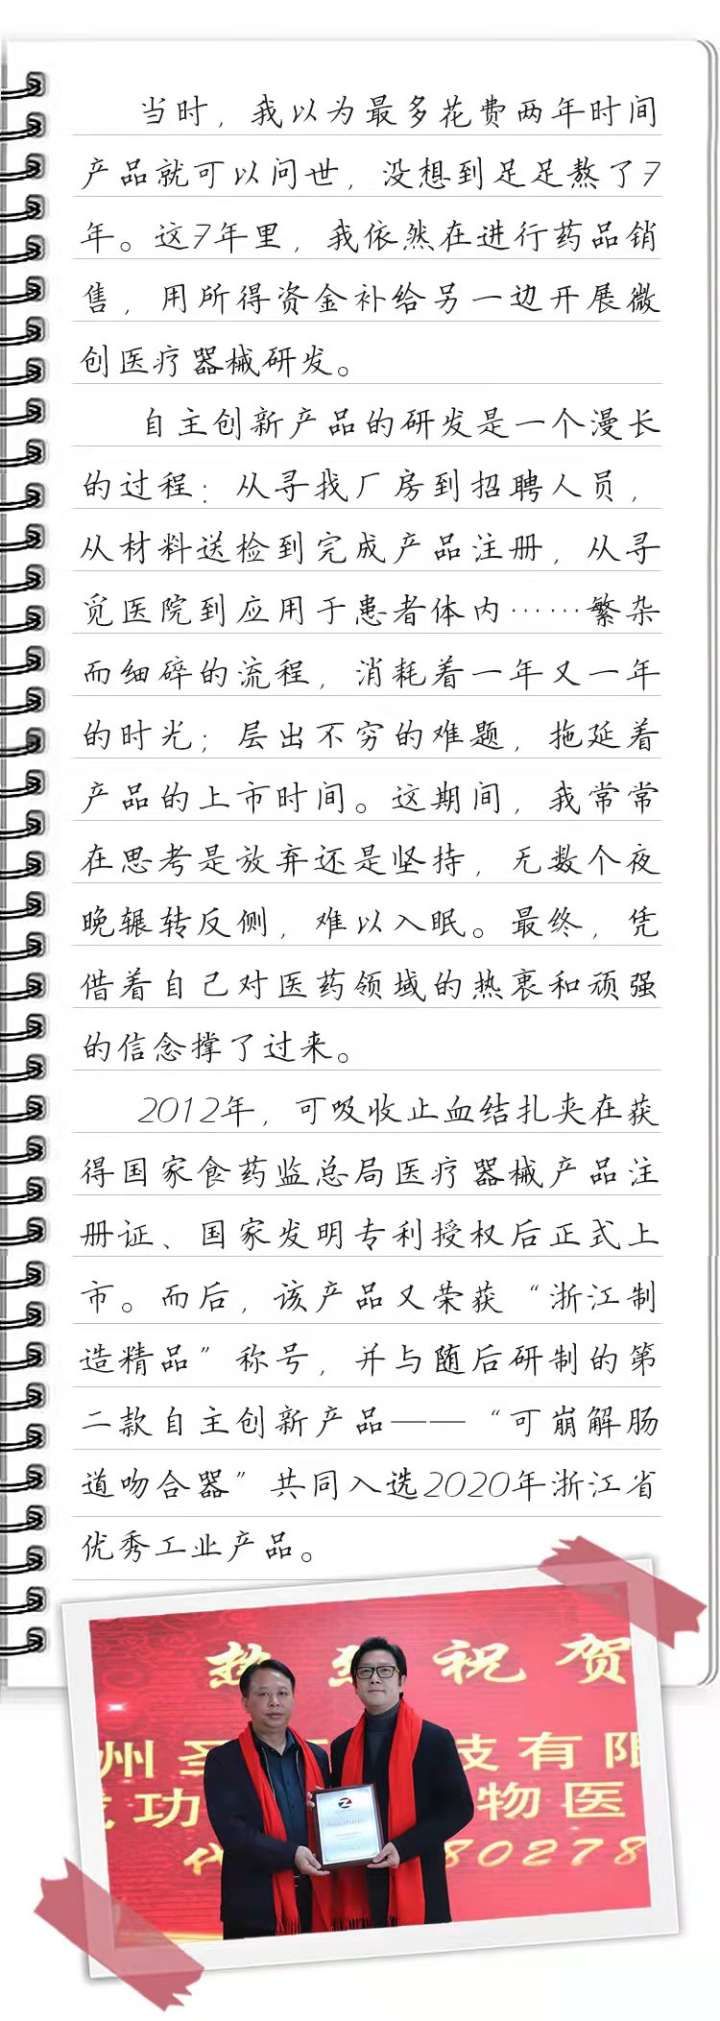 当时，我以为最多花费两年时间
产品就可以问世，没想到足足熬了7
年。这7年里，我依然在进行药品销
售，用所得资金补给另一边开展微
创医疗器械研发。
自主创新产品的研发是一个漫长
的过程：从寻找厂房到招聘人员，
从材料送检到完成产品注册，从寻
觅医院到应用于患者体内……繁杂
而细碎的流程，消耗着一年又一年
的时光；层出不穷的难题，拖延着
产品的上市时间。这期间，我常常
在思考是放弃还是坚持，无数个夜
晚辗转反侧，难以入眠。最终，凭
借着自己对医药领域的热衷和顽强
的信念撑了过来。
2012年，可吸收止血结扎夹在获
得国家食药监总局医疗器械产品注
册证、国家发明专利授权后正式上
市。而后，该产品又荣获“浙江制
造精品”称号，并与随后研制的第
二款自主创新产品——“可崩解肠
道吻合器”共同入选2020年浙江省
优秀工业产品。
热烈祝贺
州圣 技有限
成功 物医
代 80278